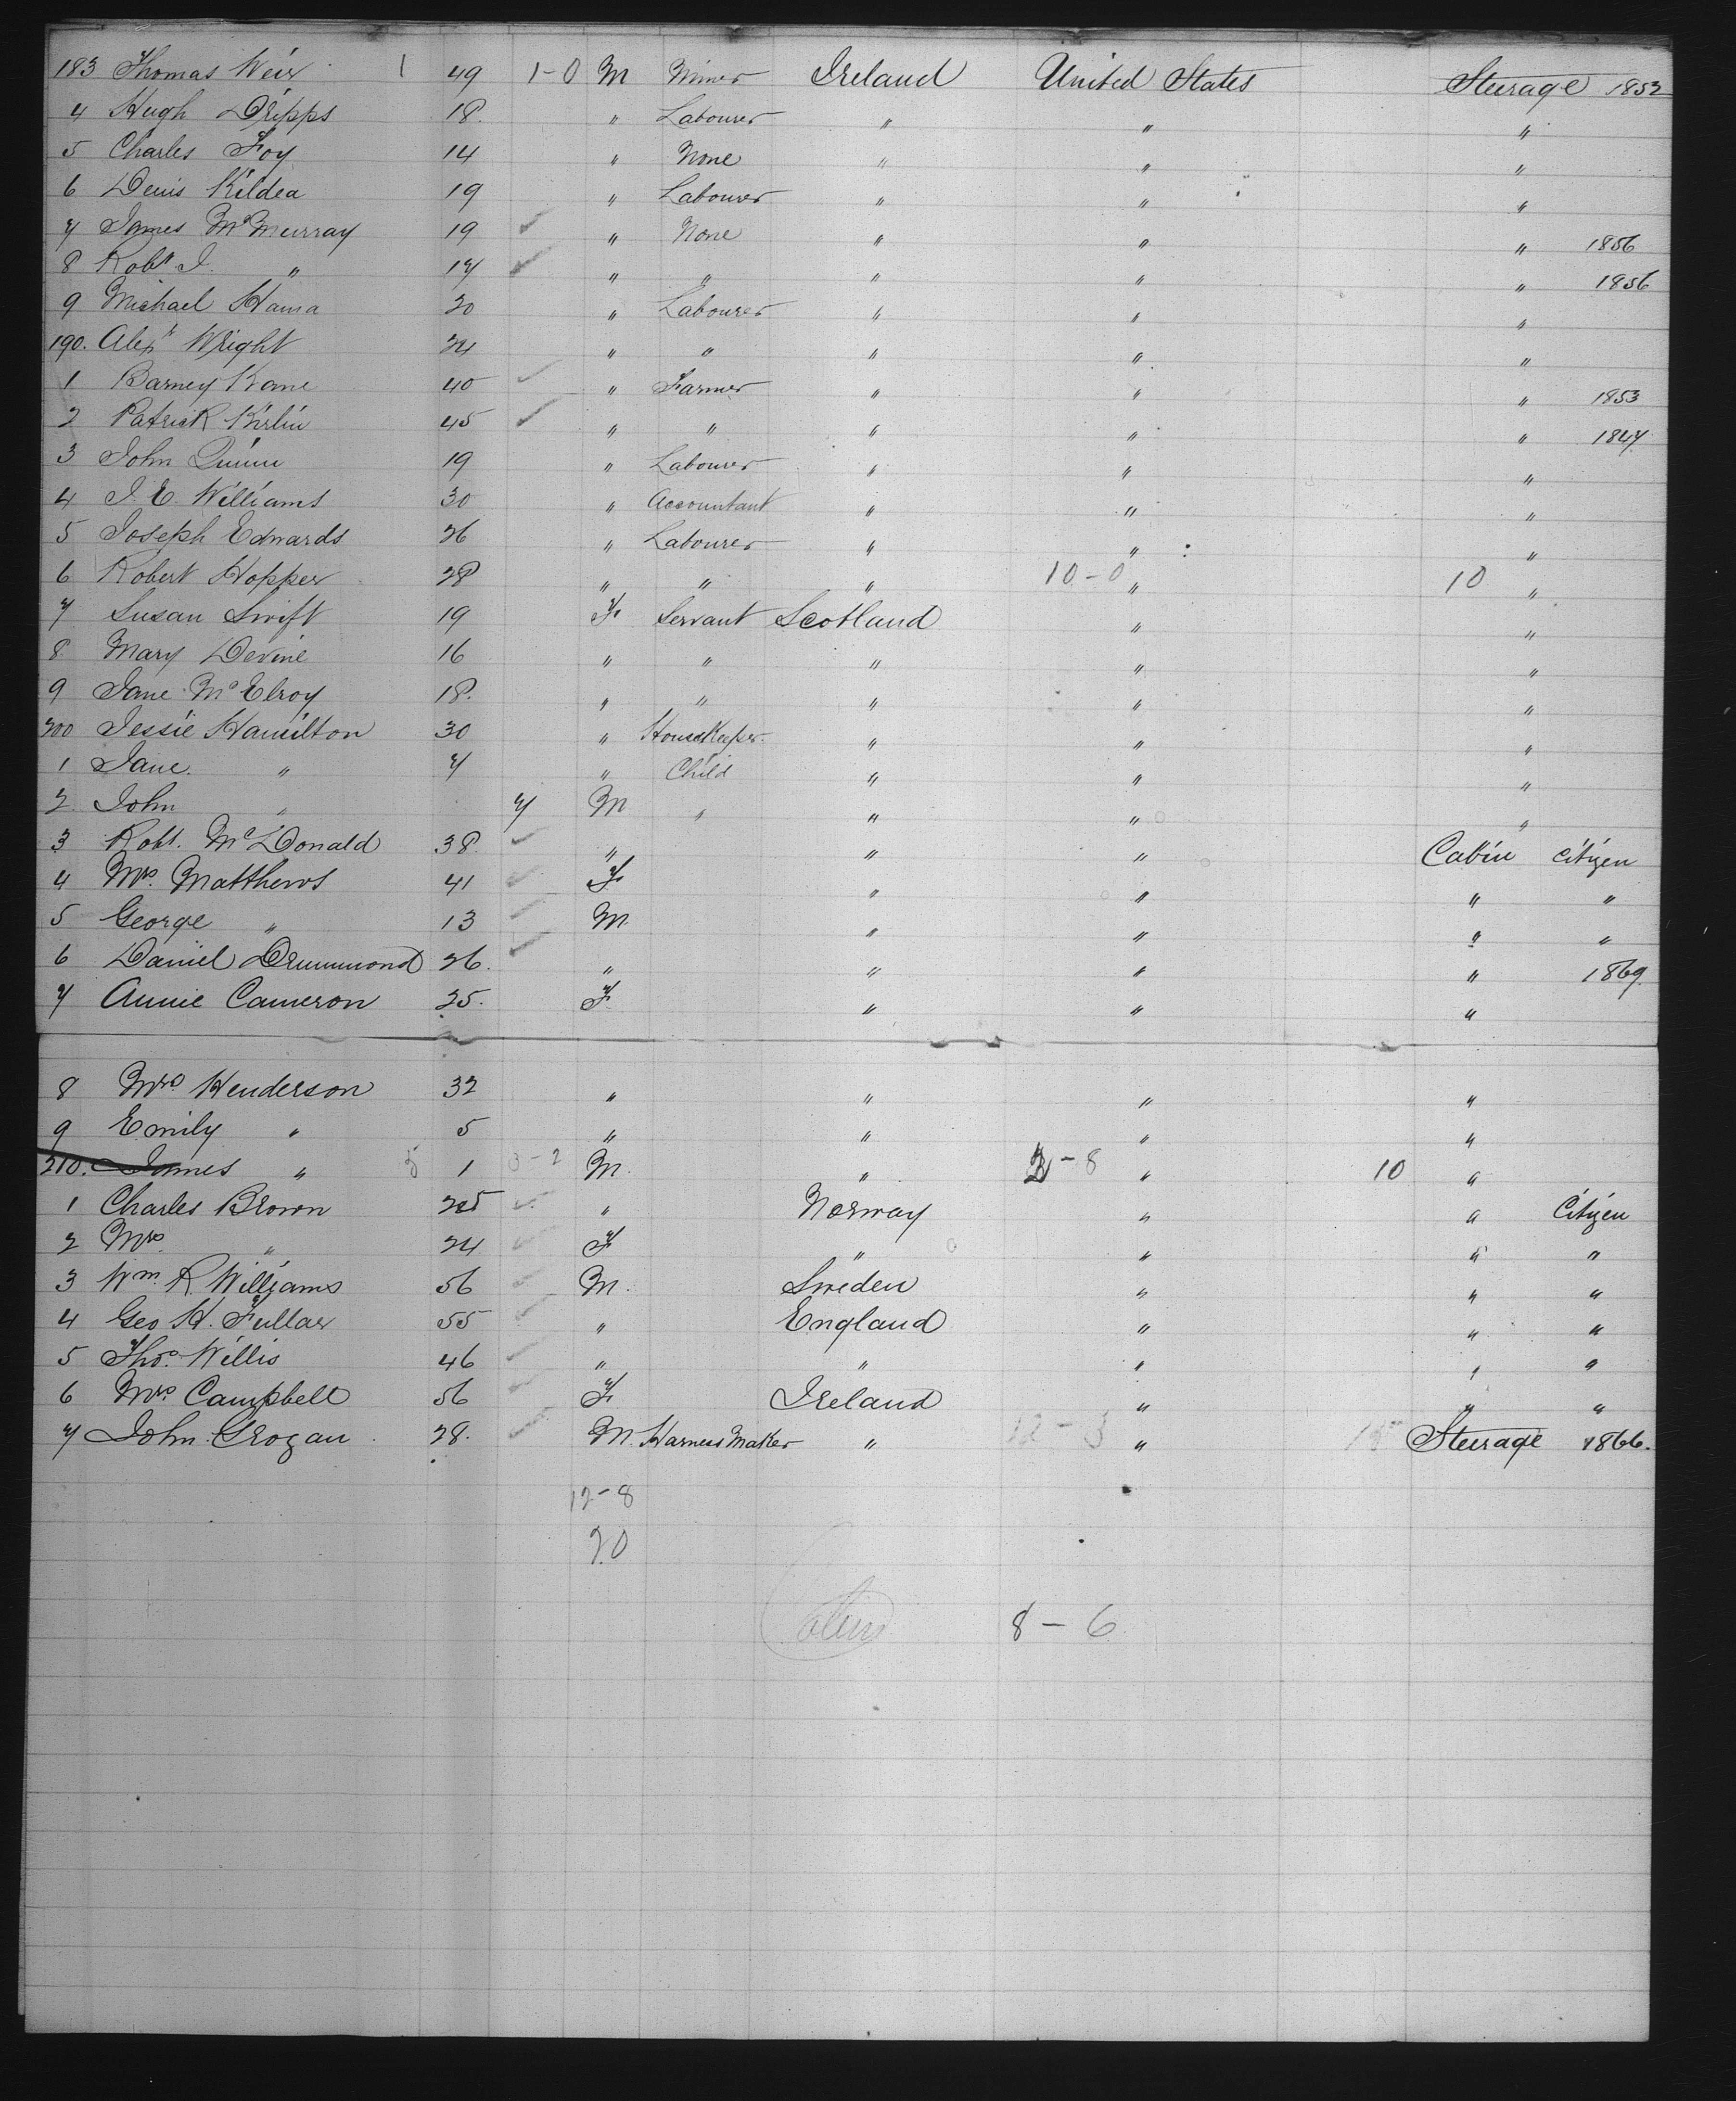 183 Thomas Weir 1 49 1-0 M Miner Ireland United States Steerage 1852
4 Hugh Dripps 18. " Labourer " " "
5 Charles Foy 14 " None " " "
6 Denis Kildea 19 " Labourer " " "
7 James McMurray 19 ✓ " None " " " 1856
8 Robt J. " 17 ✓ " " " " " 1856
9 Michael Hanna 20 " Labourer " " "
190. Alexr Wright 24 " " " " "
1 Barney Kane 40 ✓ " Farmer " " " 1853
2 Patrick Kirlin 45 ✓ " " " " " 1847
3 John Quinn 19 " Labourer " " "
4 J. E. Williams 30 " Accountant " " "
5 Joseph Edwards 26 " Labourer " " "
6 Robert Hopper 28 " " " 10-0 " 10 "
7 Susan Swift 19 F Servant Scotland " "
8 Mary Devine 16 " " " " "
9 Jane McElroy 18. " " " " "
200 Jessie Hamilton 30 " HouseKeeper " " "
1 Jane " 7 " Child " " "
2 John " 7 M " " " "
3 Robt. McDonald 38 ✓ " " " Cabin Citizen
4 Mrs. Matthews 41 ✓ F " " " "
5 George " 13 ✓ M " " " "
6 Daniel Drummond 26. ✓ " " " " 1869.
7 Annie Cameron 25. F " " "
8 Mrs Henderson 32 " " " "
9 Emily " 5 " " " "
210. James " 5 1 3-2 M " 2-8 " 10 "
1 Charles Brown 25 ✓ " Norway " " Citizen
2 Mrs " 24 ✓ F " " " "
3 Wm. R. Williams 56 ✓ M. Sweden " " "
4 Geo H. Fullar 55 ✓ " England " " "
5 Thos. Willis 46 ✓ " " " " "
6 Mrs Campbell 56 ✓ F Ireland " " "
7 John Grogan 28. ✓ M. Harness Maker " 12-3 " Steerage 1866.
12-8
20
8-6